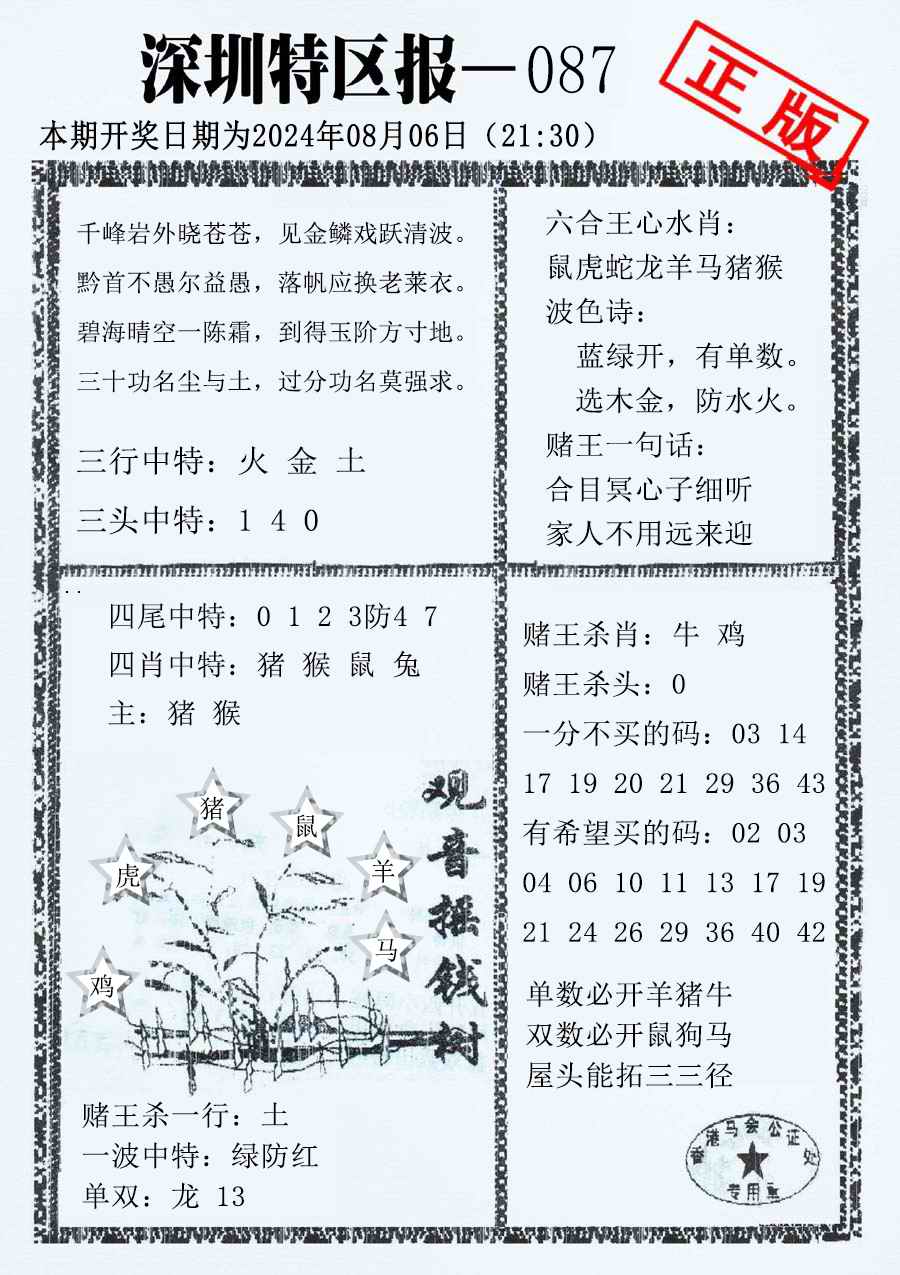 深圳特区报—087
正版
本期开奖日期为2024年08月06日（21:30）
千峰岩外晓苍苍，见金鳞戏跃清波。
黔首不愚尔益愚，落帆应换老莱衣。
碧海晴空一陈霜，到得玉阶方寸地。
三十功名尘与土，过分功名莫强求。
三行中特：火 金 土
三头中特：1 4 0
六合王心水肖：
鼠虎蛇龙羊马猪猴
波色诗：
蓝绿开，有单数。
选木金，防水火。
赌王一句话：
合目冥心子细听
家人不用远来迎
四尾中特：0 1 2 3防4 7
四肖中特：猪 猴 鼠 兔
主：猪 猴
猪
鼠
虎
羊
马
鸡
观音摇钱树
赌王杀一行：土
一波中特：绿防红
单双：龙 13
赌王杀肖：牛 鸡
赌王杀头：0
一分不买的码：03 14
17 19 20 21 29 36 43
有希望买的码：02 03
04 06 10 11 13 17 19
21 24 26 29 36 40 42
单数必开羊猪牛
双数必开鼠狗马
屋头能拓三三径
香港马会公证处
专用章